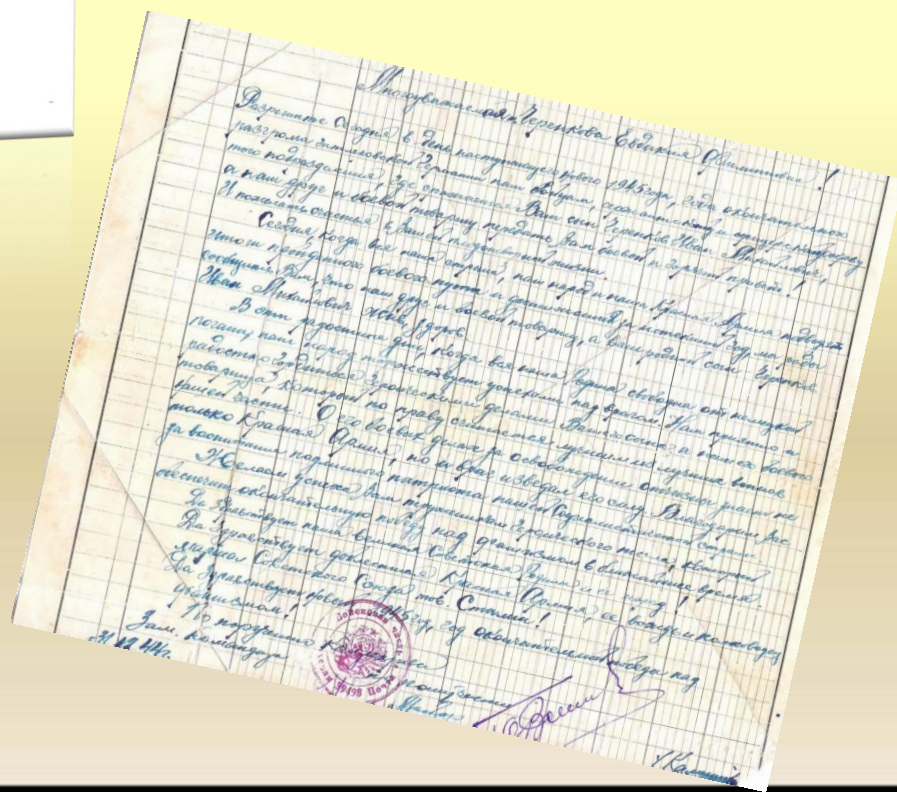 Многоуважаемая Черенкова Евдакия
Разрешите сегодня в день наступающего нового 1945 года, года окончательного
разгрома гитлеровской Германии нам
того подразделения, где Ваш сын Черенков Иван Михайлович,
а наш друг и боевой товарищ передать Вам боевой и горячий привет!
И пожелать счастья в Вашей жизни.
Сегодня, когда вся наша страна, наш народ и наша Красная Армия подводит
итоги пройденного боевого пути и достижения за истекший год, мы рады
сообщить Вам, что наш друг и боевой товарищ, а Ваш родной сын Черенков
Иван Михайлович жив, здоров.
В эти радостные дни, когда вся наша Родина свободна от немецкой
погани, наш народ торжествует над врагом. Нам приятно и
радостно гордиться героическими делами Вашего сына, а нашего боевого
товарища, который по праву считается лучшим из лучших воинов
нашей части. О его боевых делах за освобождение отчизны знает не
только Красная Армия, но и враг изведал его силу. Благодарим Вас
за воспитание подлинного патриота нашей страны.
Желаем успеха Вам труженикам героического тыла,
обеспечить окончательную победу над фашизмом в ближайшее время.
Да здравствует наша великая Советская Родина и её народ!
Да здравствует доблестная Красная Армия, её вождь и полководец
маршал Советского Союза тов. Сталин!
Да здравствует новый 1945 год, год окончательной победы над
фашизмом!
По поручению
Зам. командира
31.12.44г.
Войсковая часть
39498